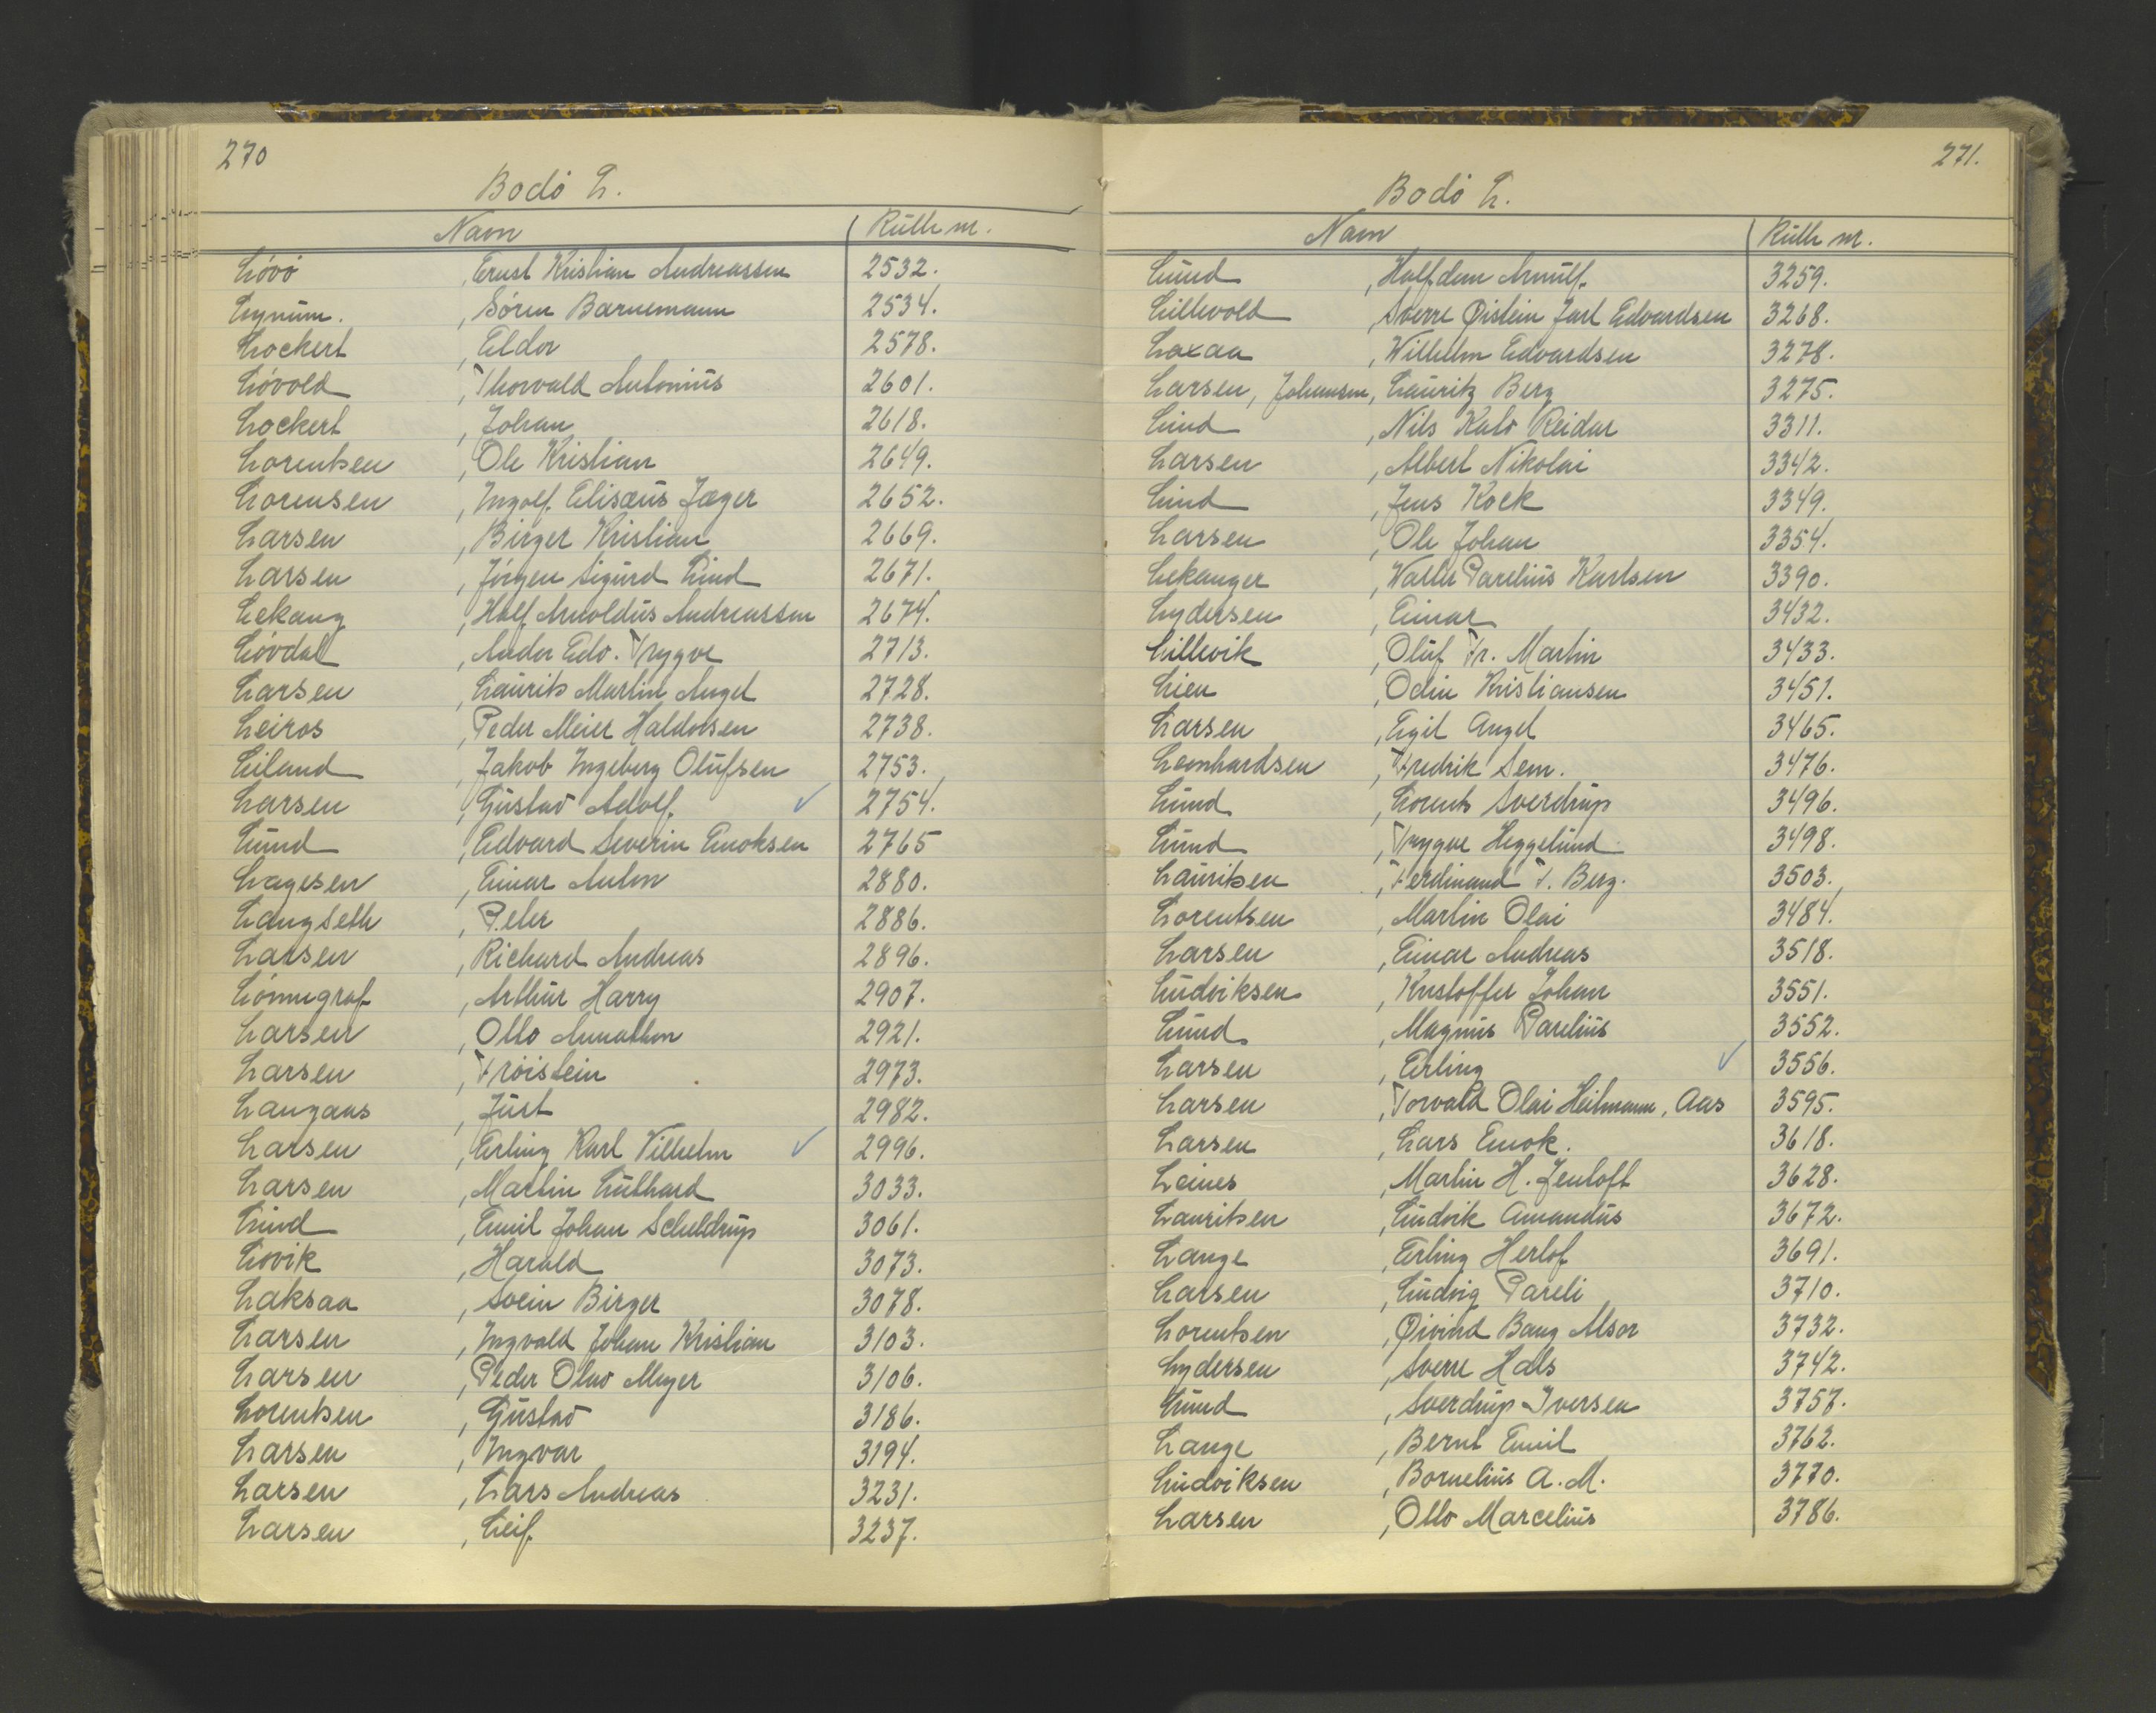 270
Bodö L.
Navn Rulle nr.
Lövö, Ernst Kristian Andreassen 2532.
Lynum., Sören Barnemann 2534.
Lockert, Eldor 2578.
Lövold, Thorvald Antonius 2601.
Lockert, Johan 2618.
Lorentsen, Ole Kristian 2649.
Lorensen, Ingolf Elisæus Jæger 2652.
Larsen, Birger Kristian 2669.
Larsen, Jörgen Sigurd Lind 2671.
Lekang, Half Arnoldus Andreassen 2674.
Lövdal, Ander Edv. Trygve 2713.
Larsen, Laurits Martin Angel 2728.
Leiros, Peder Meier Haldorsen 2738.
Leiland, Jakob Ingeberg Olufsen 2753.
Larsen, Gustav Adolf ✓ 2754.
Lund, Edvard Severin Enoksen 2765
Lagesen, Einar Anton 2880.
Langseth, Peter 2886.
Larsen, Richard Andreas 2896.
Lönngraf, Arthur Harry 2907.
Larsen, Otto Annathon 2921.
Larsen, Fröistein 2973.
Langaas, Just 2982.
Larsen, Erling Karl Vilhelm ✓ 2996.
Larsen, Martin Luthard 3033.
Lind, Emil Johan Scheldrup 3061.
Lovik, Harald 3073.
Laksaa, Svein Birger 3078.
Larsen, Ingvald Johan Kristian 3103.
Larsen, Peder Olav Meyer 3106.
Lorentsen, Gustav 3186.
Larsen, Ingvar 3194.
Larsen, Lars Andreas 3231.
Larsen, Leif 3237.
271.
Bodö L.
Navn Rulle nr.
Lund, Halfdan Arnulf 3259.
Lillevold, Sverre Øistein Jarl Edvardsen 3268.
Laxaa, Wilhelm Edvardsen 3278.
Larsen, Johansen, Lauritz Berg 3275.
Lind, Nils Kalv Reidar 3311.
Larsen, Albert Nikolai 3342.
Lind, Jens Kock 3349.
Larsen, Ole Johan 3354.
Lekanger, Walter Parelius Karlsen 3390.
Lydersen, Einar 3432.
Lillevik, Oluf Fr. Martin 3433.
Lien, Odin Kristiansen 3451.
Larsen, Egil Angel 3465.
Leonhardsen, Fredrik Sem. 3476.
Lund, Lorents Sverdrup 3496.
Lund, Trygve Heggelund 3498.
Lauritsen, Ferdinand F. Berg. 3503.
Lorentsen, Martin Olai 3484.
Larsen, Einar Andreas 3518.
Ludviksen, Kristoffer Johan 3551.
Lund, Magnus Parelius 3552.
Larsen, Erling ✓ 3556.
Larsen, Torvald Olai Heitmann, Aas 3595.
Larsen, Lars Enok. 3618.
Leines, Martin H. Jentoft 3628.
Lauritsen, Ludvik Amandus 3672.
Lange, Erling Herlof 3691.
Larsen, Ludvig Pareli 3710.
Lorentsen, Øivind Bang Alsor 3732.
Lydersen, Sverre Hals 3742.
Lund, Sverdrup Iversen 3757.
Lange, Bernt Emil 3762.
Ludviksen, Bornelius A. M. 3770.
Larsen, Otto Marcelius 3786.